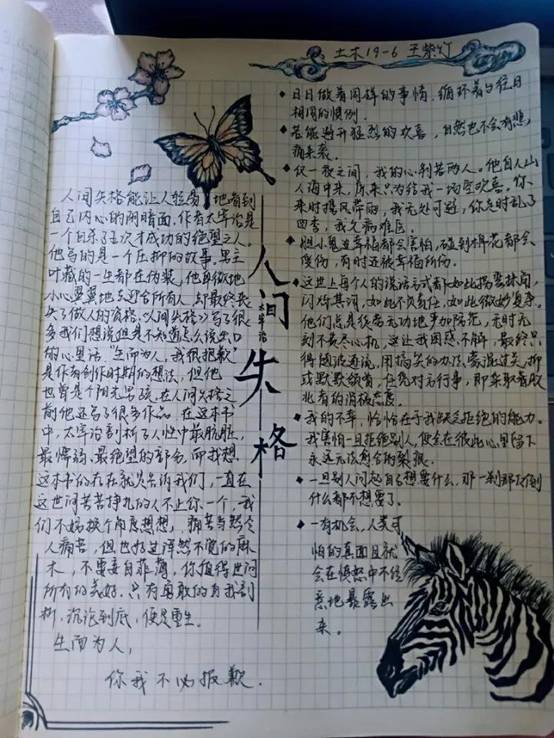 土木19-6 王紫灯
人间失格能让人轻易地看到
自己内心的阴暗面.作者太宰治是
一个自杀了五次才成功的绝望之人.
他写的是一个压抑的故事,男主
叶藏的一生都在伪装,他卑微地
小心翼翼地去迎合所有人,却最终丧
失了做人的资格.《人间失格》写了很
多我们想说但是不知道怎么说出口
的心里话."生而为人,我很抱歉"
是作者创作时期的想法,但他
也曾是个阳光男孩,在人间失格之
前他还写了很多作品.在这本书
中,太宰治剖析了人性中最肮脏,
最懦弱,最绝望的部分,而我想
这本书的存在就是告诉我们,一直在
这世间苦苦挣扎的人不止你一个,我
们不妨换个角度想想,痛苦当然令
人痛苦,但也好过浑然不觉的麻
木,不要妄自菲薄,你值得世间
所有的美好.只有勇敢的自我剖
析,沉沦到底,便是重生.
生而为人,
你我不必抱歉.
人间失格
太宰治
日日做着同样的事情,循环着与往日
相同的惯例.
若能避开猛烈的欢喜,自然也不会有悲
痛来袭.
仅一夜之间,我的心判若两人.他自人山
人海中来,原来只为给我一场空欢喜.你
来时携风带雨,我无处可避,你走时乱了
四季,我久病难医.
胆小鬼连幸福都会害怕,碰到棉花都会
受伤,有时还被幸福所伤.
这世上每个人的说话方式都如此拐弯抹角,
闪烁其词,如此不负责任,如此微妙复杂.
他们总是徒劳无功地严加防范,无时无
刻不费尽心机,这让我困惑不解,最终只
得随波逐流,用搞笑的办法蒙混过关,抑
或默默颔首,任凭对方行事,即采取着败
北者的消极态度.
我的不幸,恰恰在于我缺乏拒绝的能力.
我害怕一旦拒绝别人,便会在彼此心里留下
永远无法愈合的裂痕.
一旦别人问起自己想要什么,那一刹那反倒
什么都不想要了.
一有机会,人类可
怕的真面目就
会在愤怒中不经
意地暴露出
来.